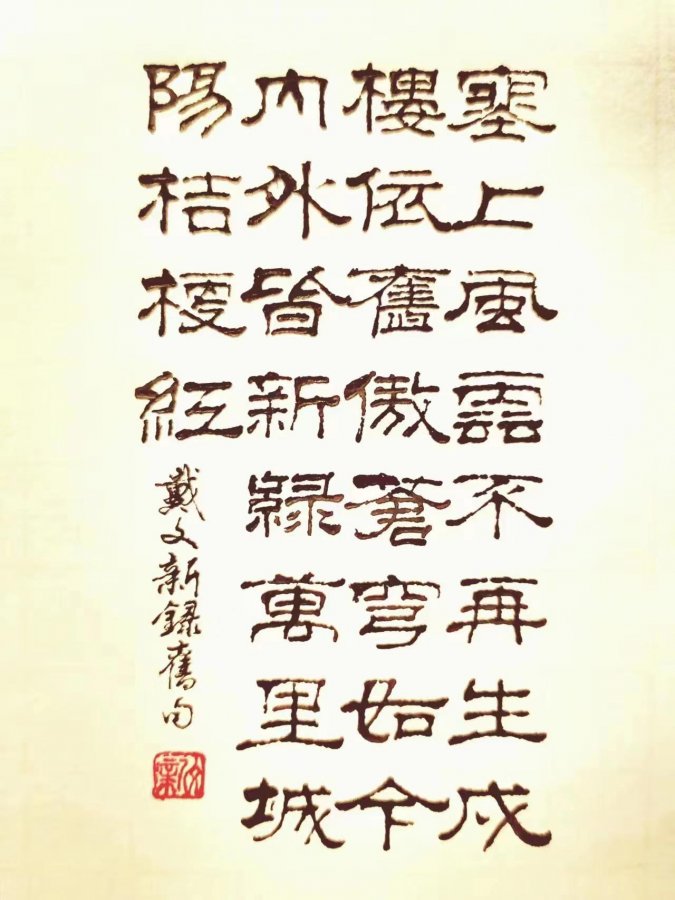 塞上風雲不再生戍
樓依舊傲蒼穹如今
內外皆新綠萬里城
陽桔梗紅
戴文新錄舊句